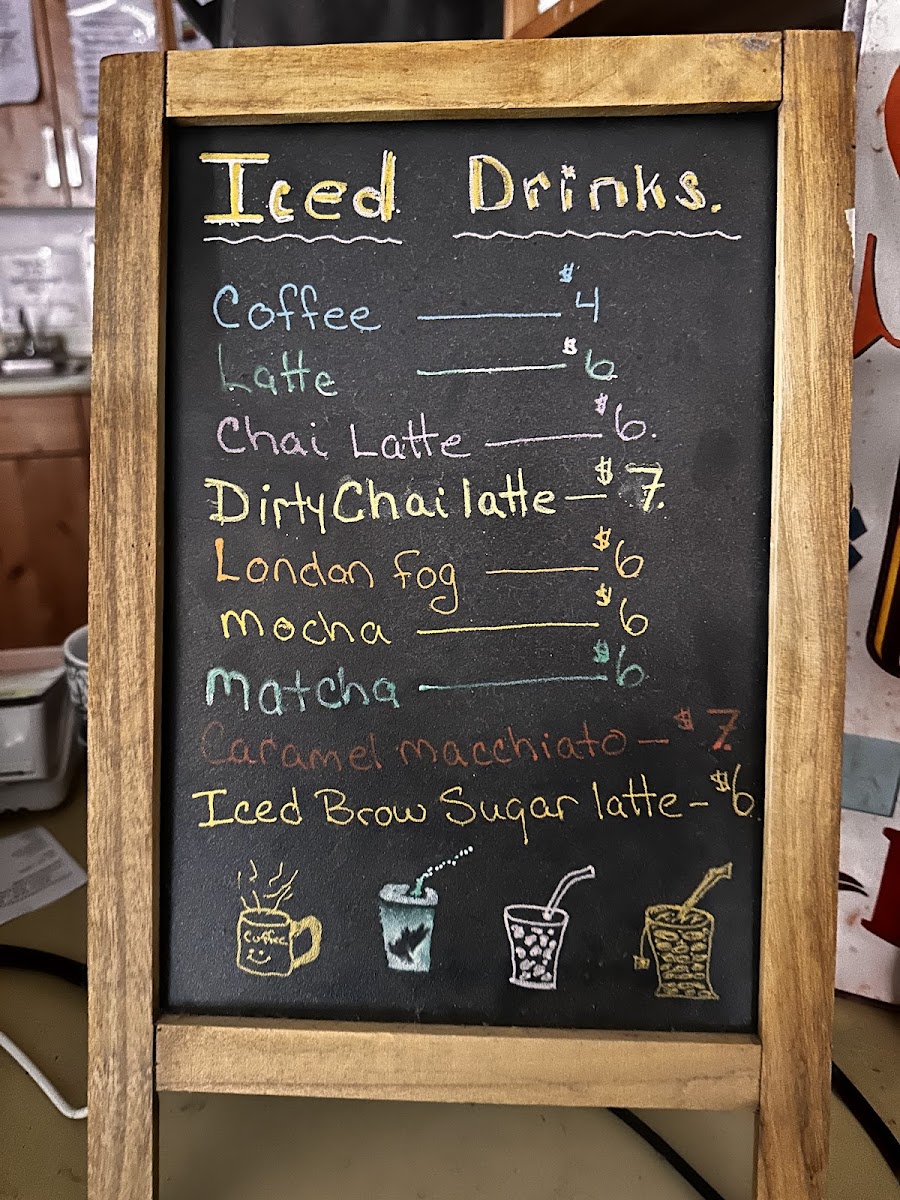 Iced Drinks.
Coffee $4
Latte $6
Chai Latte $6.
Dirty Chai latte - $7.
London fog $6
Mocha $6
Matcha $6
Caramel macchiato - $7.
Iced Brow Sugar latte - $6.
Coffee